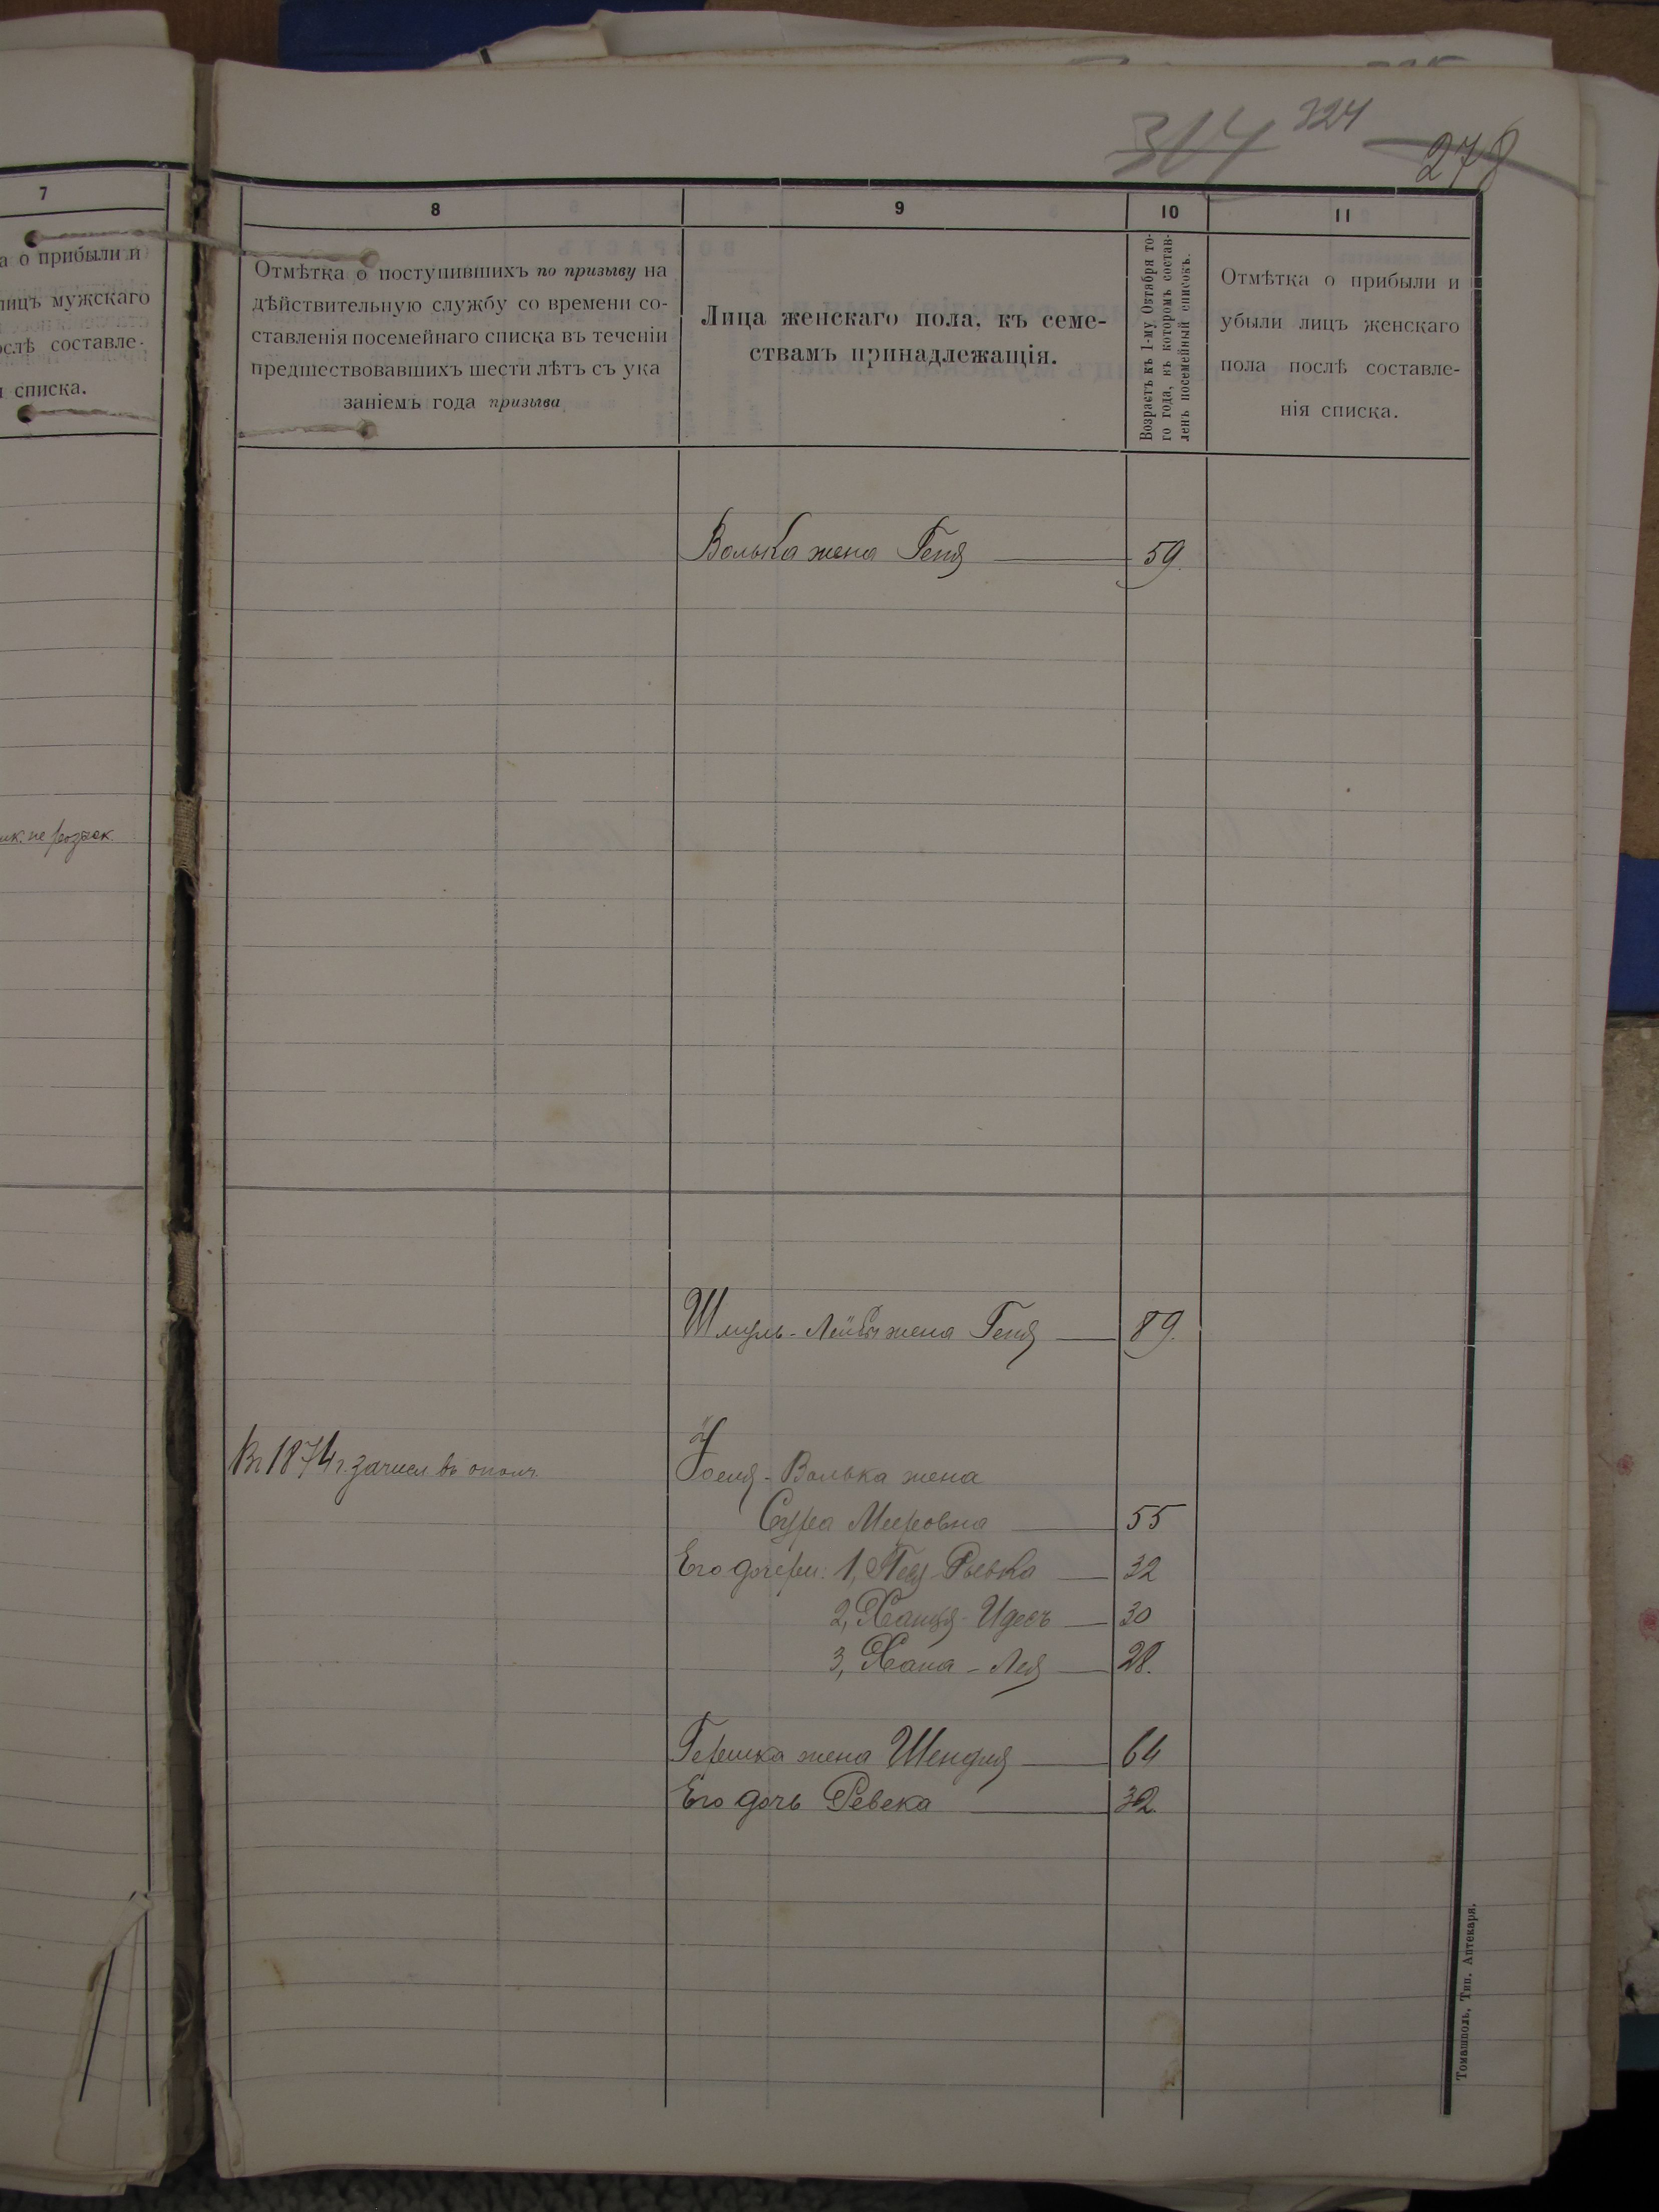 314 324 278
7
а о прибыли и
лицъ мужскаго
ослѣ составле-
и списка.
8
Отмѣтка о поступившихъ по призыву на
дѣйствительную службу со времени со-
ставленія посемейнаго списка въ теченіи
предшествовавшихъ шести лѣтъ съ ука
заніемъ года призыва
9
Лица женскаго пола, къ семе-
ствамъ принадлежащія.
10
Возрастъ къ 1-му Октября то-
го года, къ которомъ состав-
ленъ посемейный списокъ.
11
Отмѣтка о прибыли и
убыли лицъ женскаго
пола послѣ составле-
нія списка.
Волька жена Геня 59.
не розыск.
Шмуль-Лейбы жена Геня 89.
Въ 1874 г. зачисл. въ ополч.
Іосель-Волька жена
Сура Мееровна 55
Его дочери: 1, Рывка 32
2, Ханця-Идесъ 30
3, Хана-Лея 28.
Гершка жена Шендля 64
Его дочь Ревека 32.
Томашполь, Тип. Аптекаря.